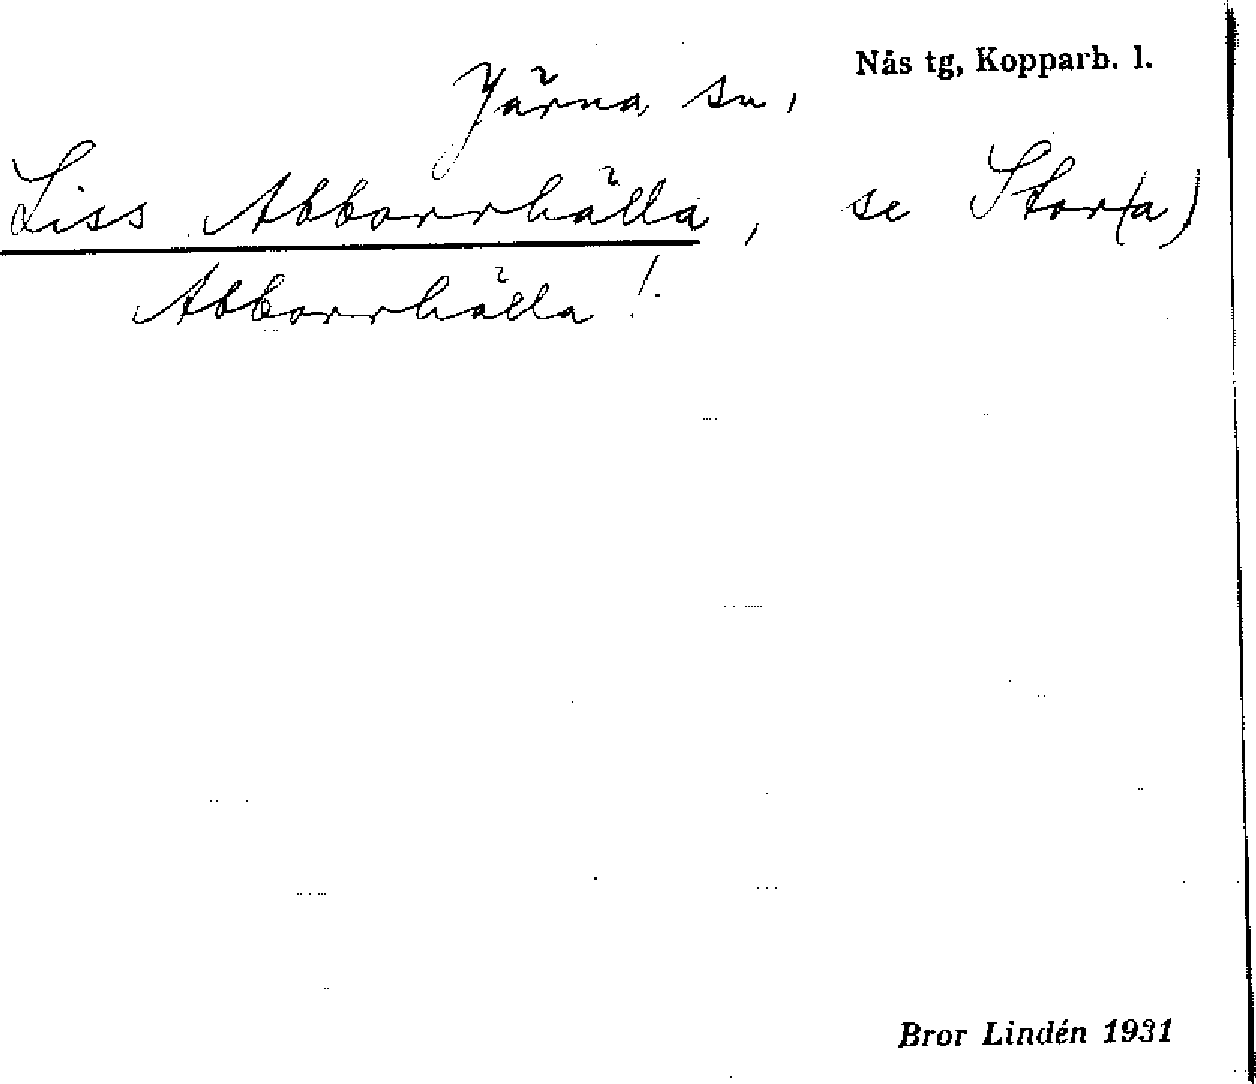 Nås tg, Kopparb. l.
Järna sn,
Liss Abborrhälla, se Stor(a)
Abborrhälla!
Bror Lindén 1931